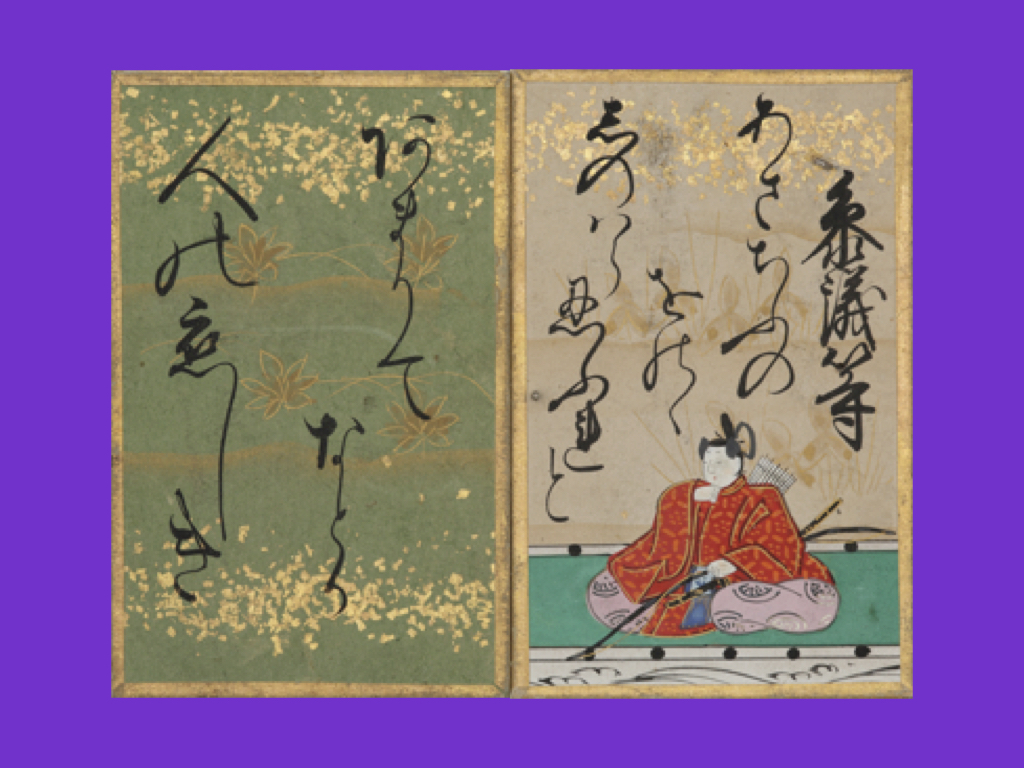 参議等
あさちふの
をのゝ
しのはら忍ふれと
あまりて
なとか
人の恋しき